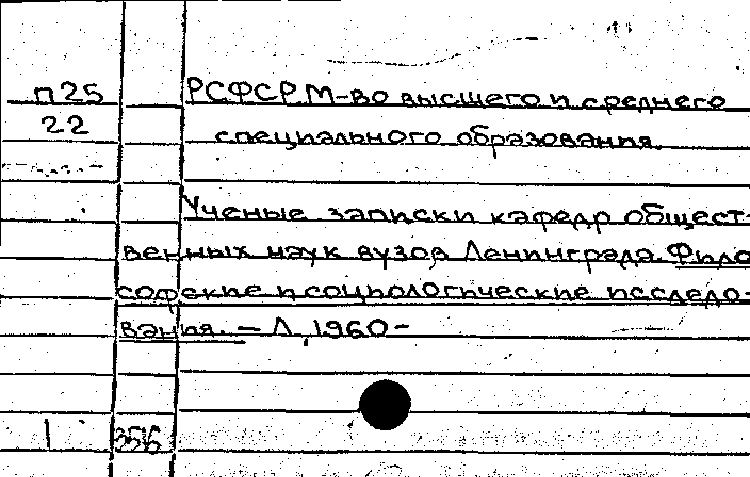 п25 РСФСР. М-во высшего и среднего
22 специального образования.
Ученые записки кафедр общест-
венных наук вузов Ленинграда. Фило
софские и социологические исследо-
вания. – Л., 1960-
1 356